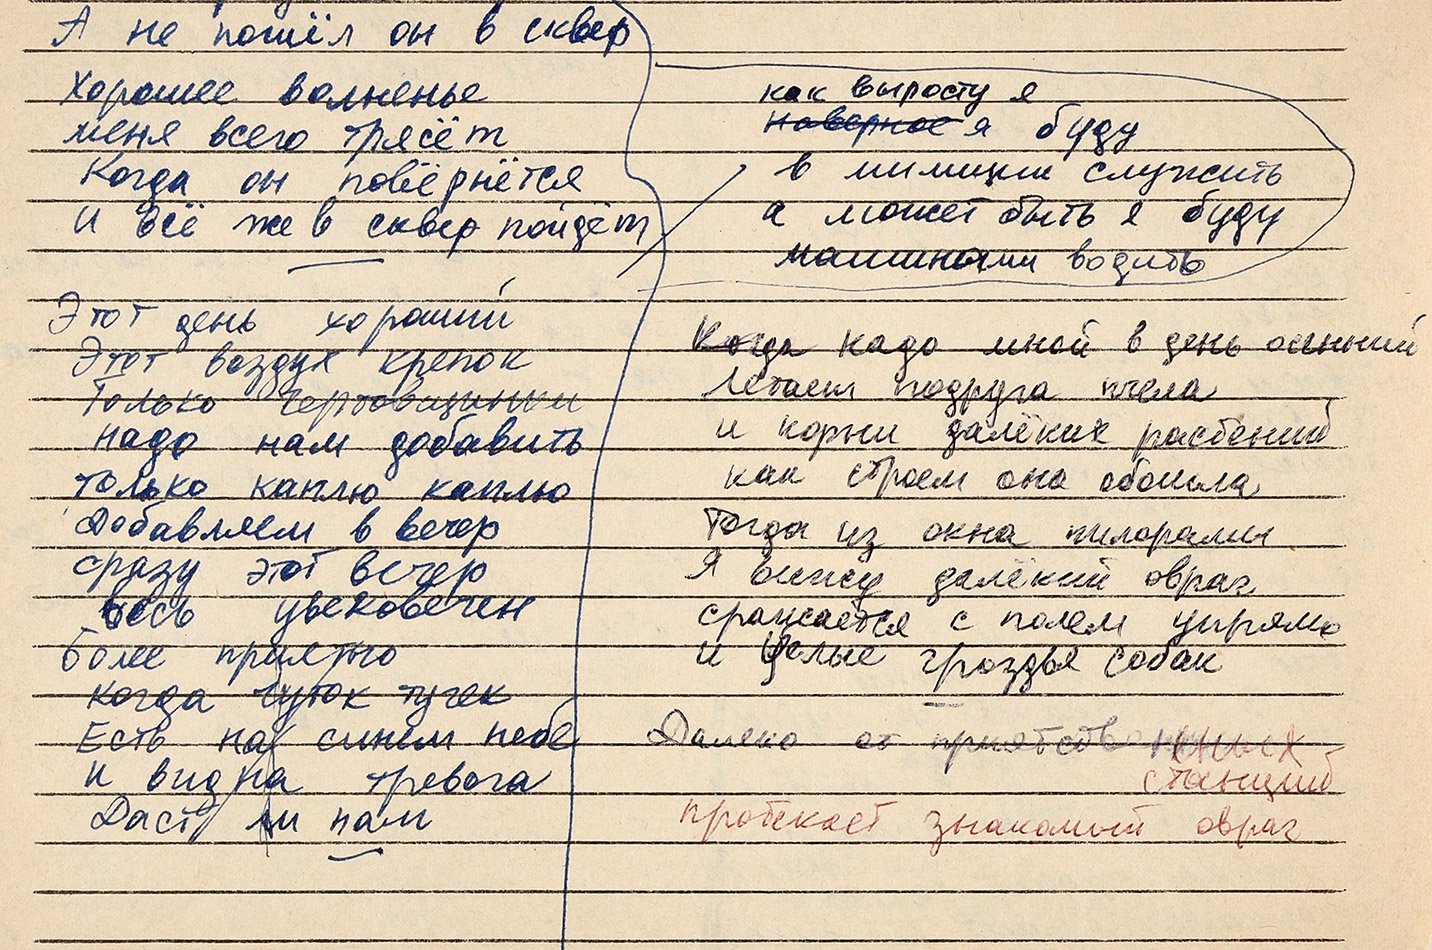 А не пошёл он в сквер
Хорошее волненье
меня всего трясёт
Когда он повернётся
И всё же в сквер пойдёт
Этот день хороший
Этот воздух крепок
Только чертовщинки
надо нам добавить
только каплю каплю
Добавляем в вечер
сразу этот вечер
весь увековечен
Более приятно
когда чуток тучек
Есть на синем небе
и видна тревога
Даст ли нам
как вырасту я
наверное я буду
в милиции служить
а может быть я буду
машинами водить
Когда надо мной в день осенний
летает подруга пчела
и корни далёких растений
как строем она обошла
Тогда из окна пилорамы
Я вижу далёкий овраг
сражается с полем упрямо
и целые гроздья собак
Далеко от приятственных
станций
протекает знакомый овраг